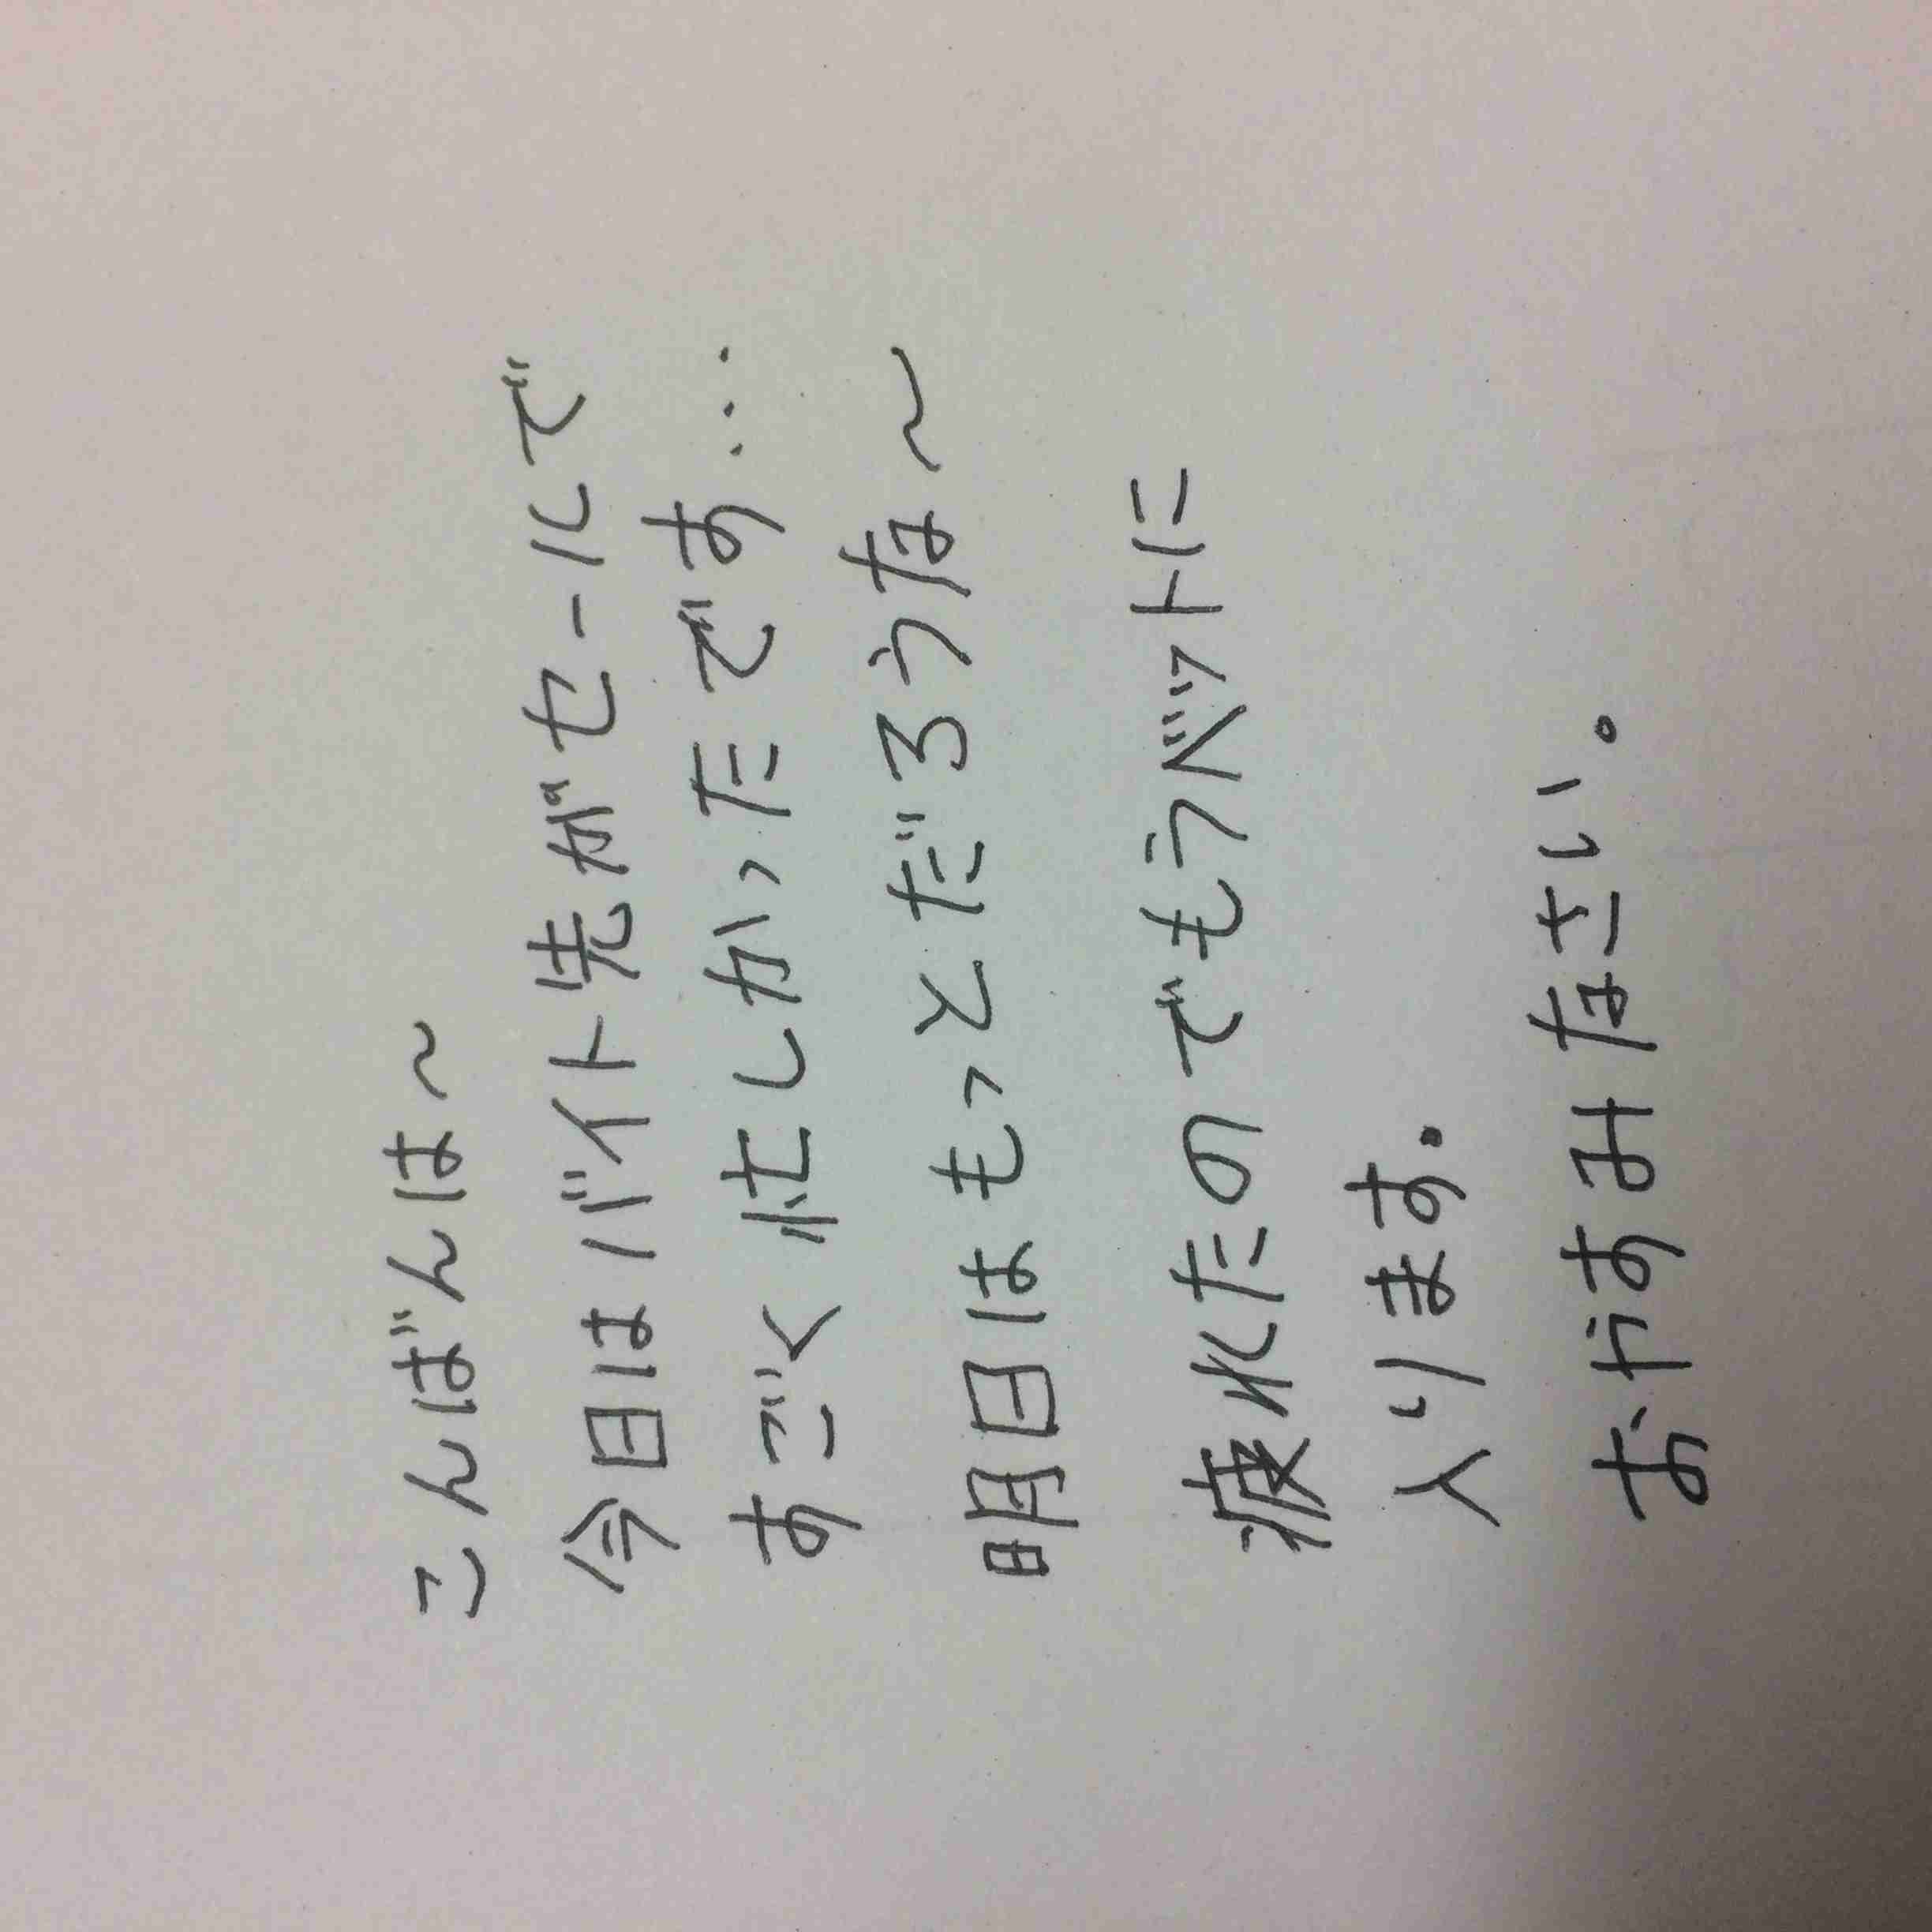 こんばんは～
今日はバイト先がセールで
すごく忙しかったです…
明日はもっとだろうな～
疲れたのでもうベットに
入ります.
おやすみなさい。